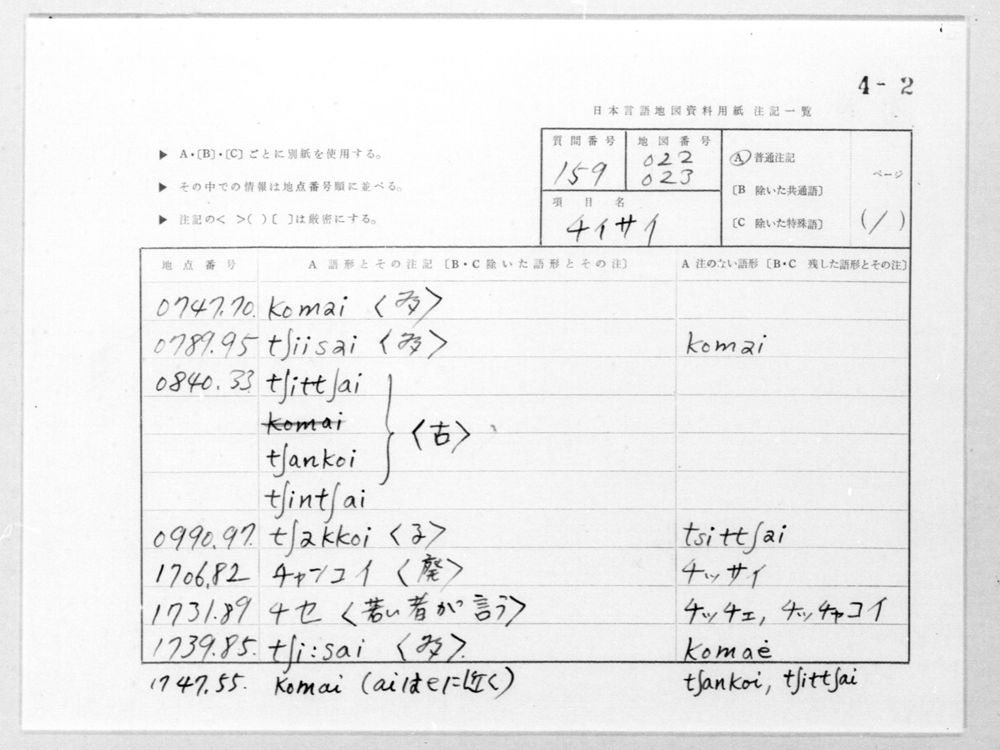 4-2
日本言語地図資料用紙 注記一覧
▶ A・〔B〕・〔C〕ごとに別紙を使用する。
▶ その中での情報は地点番号順に並べる。
▶ 注記の< >( )〔 〕は厳密にする。
質問番号 地図番号
159 022
023
項目名
チイサイ
Ⓐ 普通注記
〔B 除いた共通語〕
〔C 除いた特殊語〕
ページ
(1)
地点番号 A 語形とその注記〔B・C 除いた語形とその注〕 A 注のない語形〔B・C 残した語形とその注〕
0747.70. komai 〈多〉
0789.95 tʃiisai 〈多〉 komai
0840.33 tʃittʃai
komai 〈古〉
tʃankoi
tʃintʃai
0990.97. tʃakkoi 〈る〉 tsittʃai
1706.82 チャンコイ 〈廃〉 チッサイ
1731.89 チセ 〈若い者が言う〉 チッチェ, チッチャコイ
1739.85. tʃi:sai 〈多〉. komaė
1747.55. komai (aiはeに近く) tʃankoi, tʃittʃai